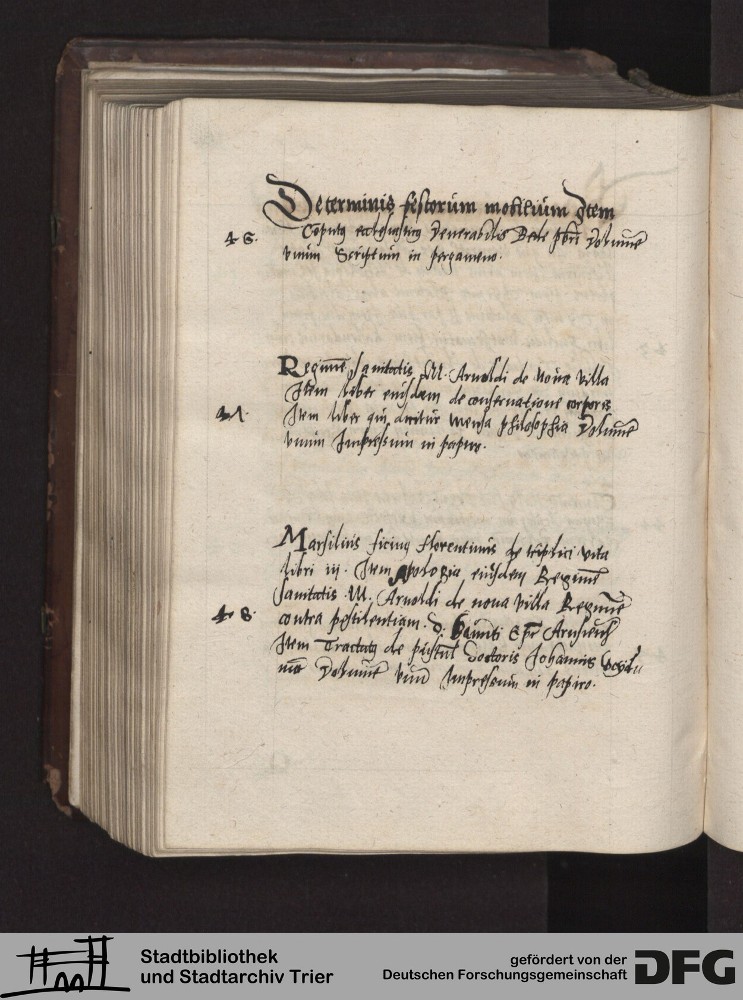 Determinis festorum mobilium Item
46. Computus ecclesiasticus Venerabilis Bede pbri Volumē
vnum Scriptum in pergameno.
Regimē sanitatis M. Arnoldi de Noua villa
Item liber eiusdem de conseruatione corporis
47. Item liber qui dicitur mensa philosophia Volumē
vnum Impressum in papiro.
Marsilius ficinus florentinus de triplici vita
libri iij. Item Apologia eiusdem Regimē
sanitatis M. Arnoldi de noua villa Regimē
48. contra pestilentiam. d. Epi
Item Tractatus de doctoris Johannis
Volumē vnū Impressum in papiro.
Stadtbibliothek
und Stadtarchiv Trier
gefördert von der
Deutschen Forschungsgemeinschaft
DFG